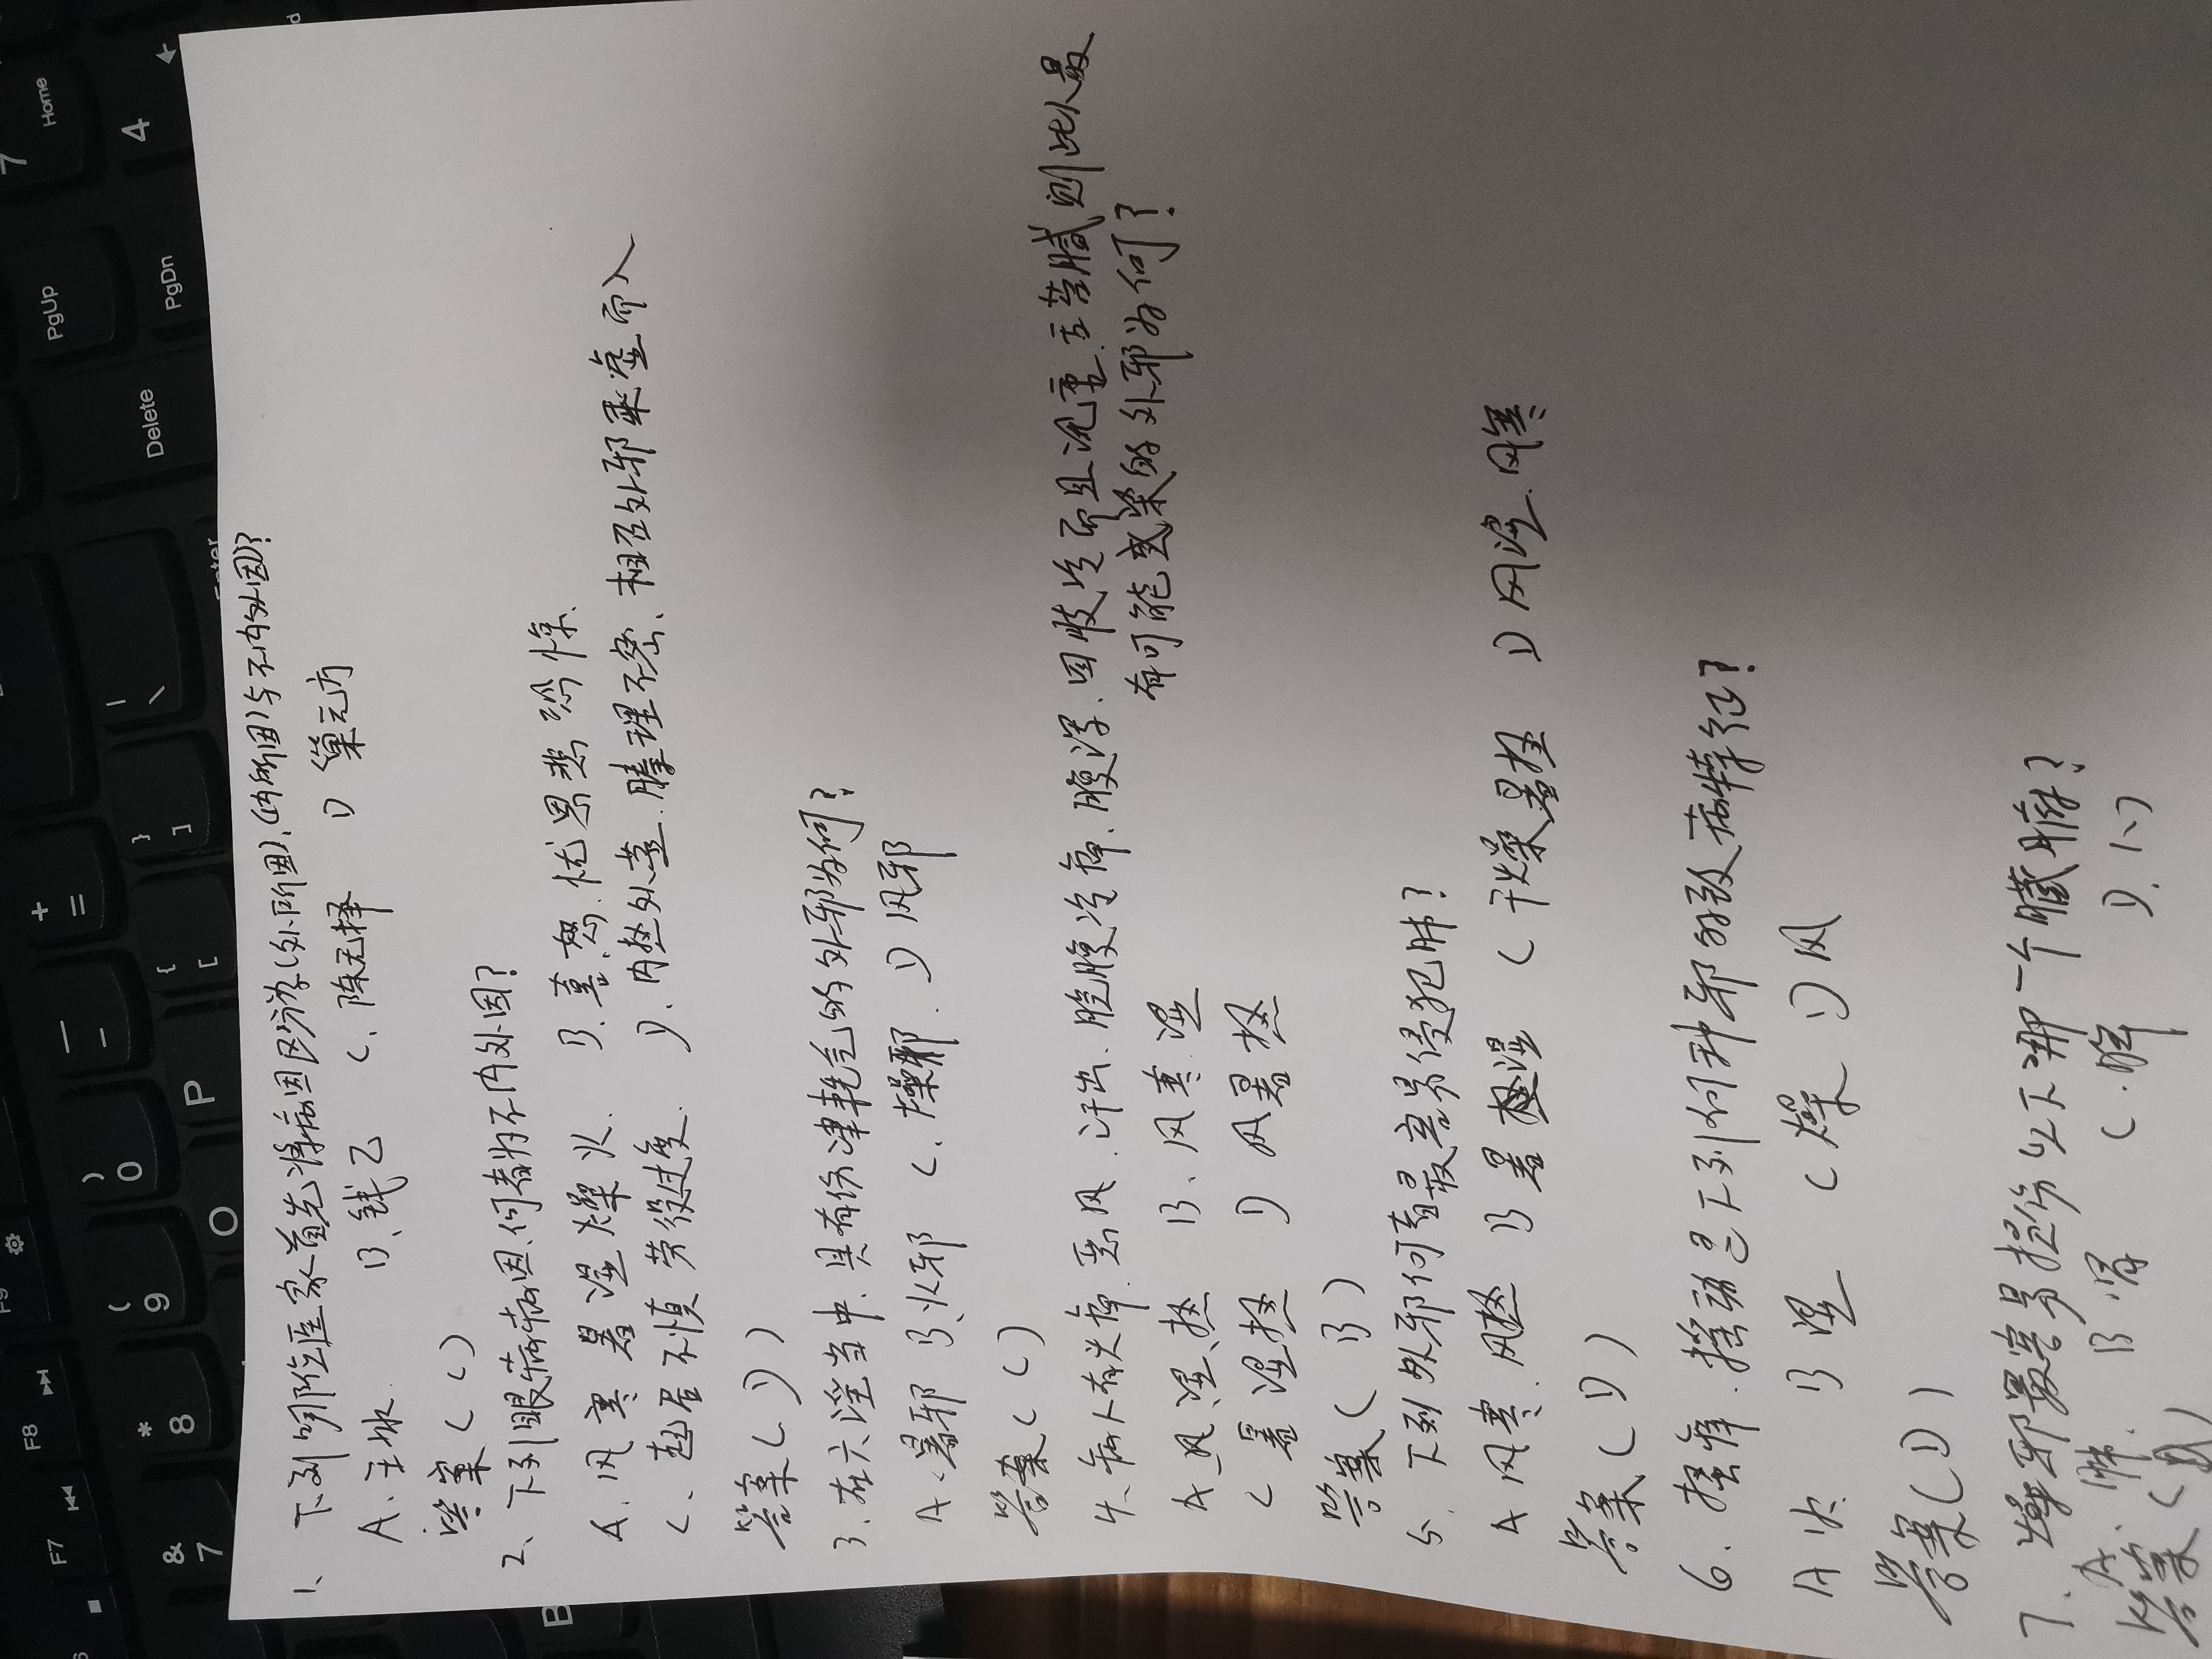 1、下列哪位医家首先将病因区分为(外所因)、(内所因)与不内外因?
A.王冰 B、钱乙 C、陈无择 D 巢元方
答案(C)
2、下列眼病病因,何者为不内外因?
A.风寒暑湿燥火. B.喜.怒.忧思悲恐惊.
C、起居不慎 劳役过度. D、内热外蒸.腠理不密、相互外邪乘虚而入
答案(D)
3、在六淫当中、具有伤津耗气的外邪为何?
A、暑邪 B、火邪 C、燥邪. D 风邪
答案(C)
4、病人有头痛.恶风.汗出、脘腹冷痛.腹泻.四肢冷而且沉重.舌苔腻则此人最
有可能感染的外邪为何?
A 风、湿、热 B、风寒.湿
C 暑 湿热 D 风暑热
答案(B)
5、下列外邪何者最容易侵犯肺?
A 风寒.风热 B 暑 湿 C 干燥暑热 D 风湿.风寒
答案(D)
6.搔痒.摇动是下列何种邪的致病特征?
A 火 B 湿 C 燥 D 风
答案(D)
7、燥邪最容易损伤以下哪一个臟腑?
A.肺. B 肾 C.脾 D.心
答案(A)
7
4
Home
PgUp
PgDn
Delete
Enter
|
\
}
]
{
[
+
=
—
-
P
O
)
0
(
9
*
8
&
7
F9
F8
F7
B